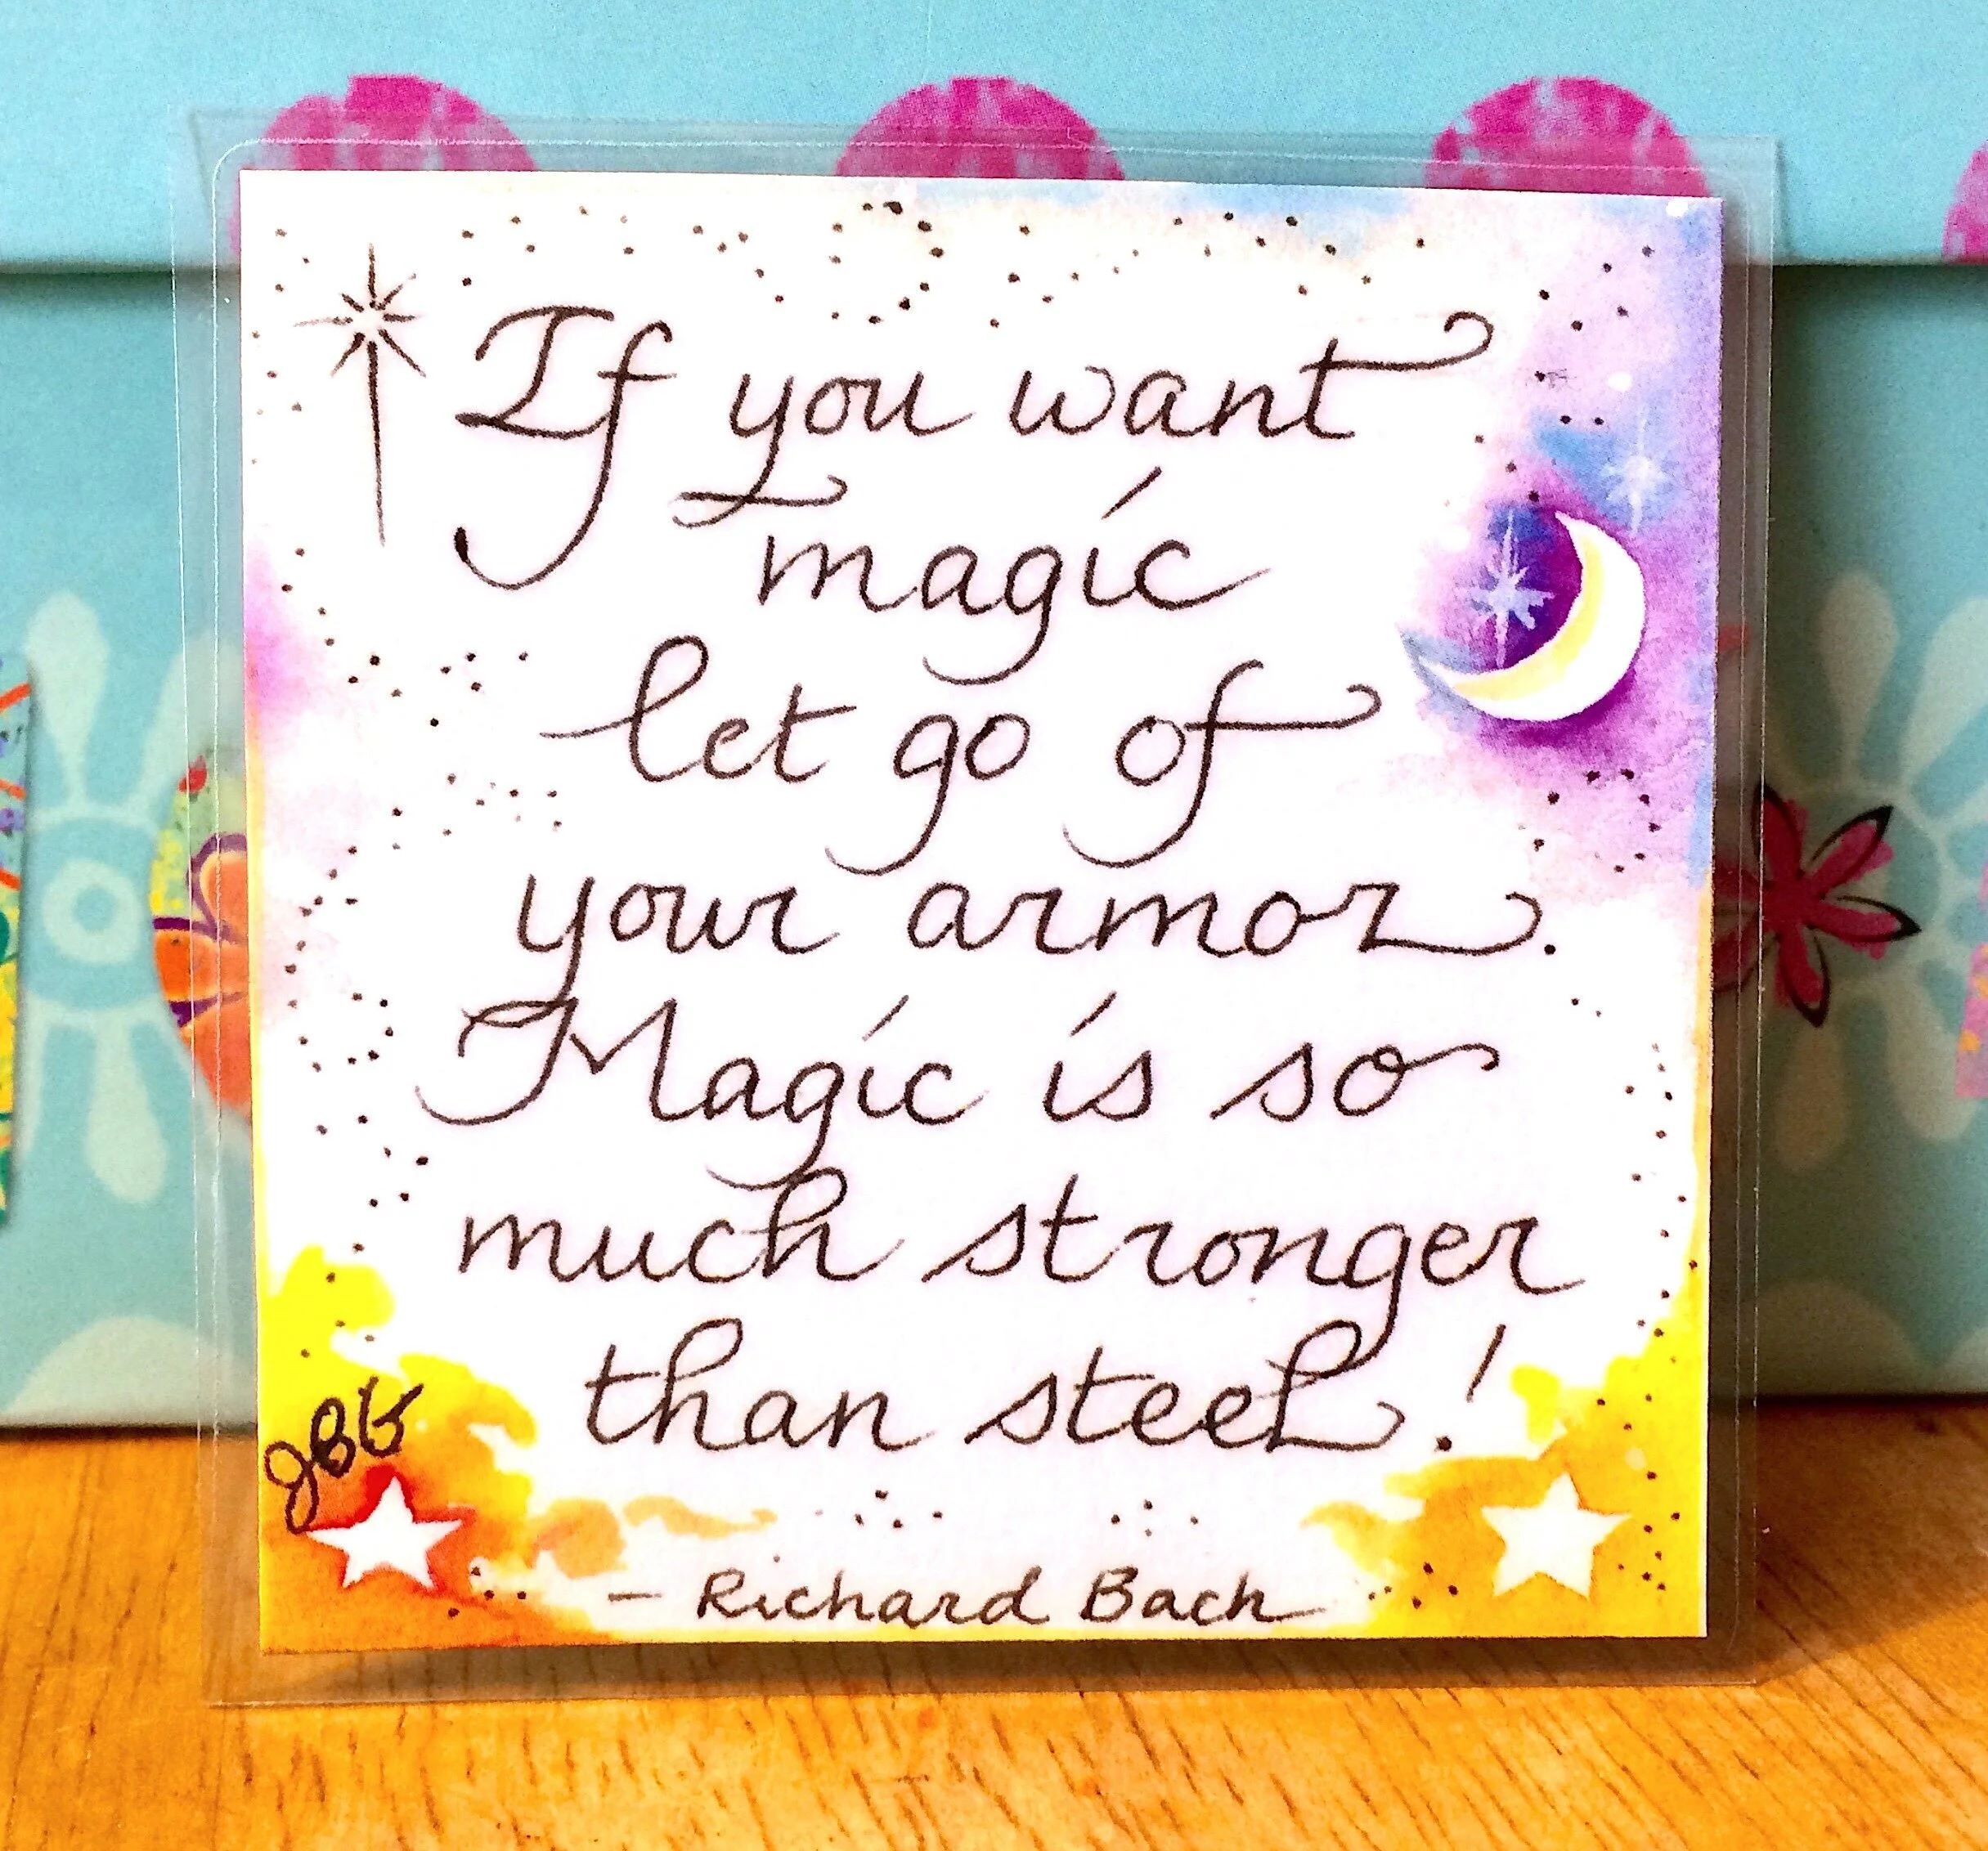 If you want
magic
let go of
your armor.
Magic is so
much stronger
than steel!
- Richard Bach